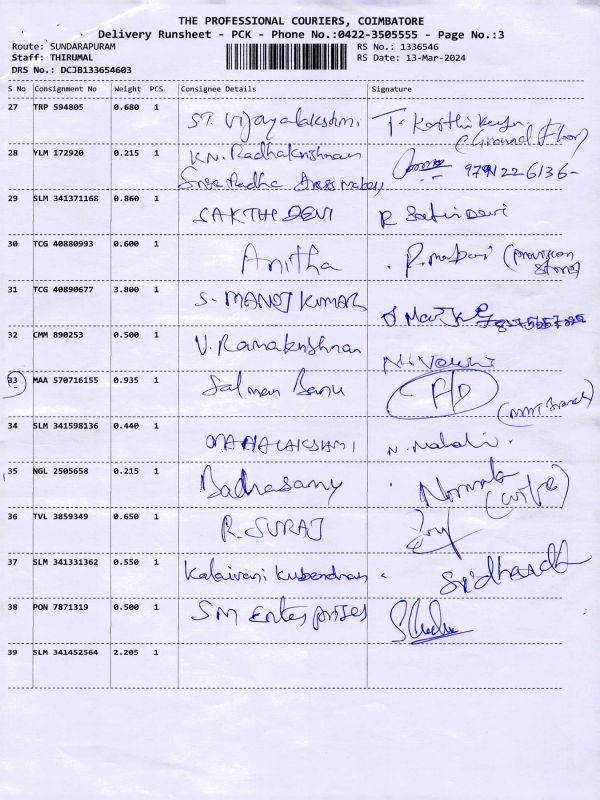 THE PROFESSIONAL COURIERS, COIMBATORE
Delivery Runsheet - PCK - Phone No.:0422-3505555 - Page No.:3
Route: SUNDARAPURAM RS No.: 1336546
Staff: THIRUMAL RS Date: 13-Mar-2024
DRS No.: DCJB133654603
S No Consignment No Weight PCS Consignee Details Signature
27 TRP 594805 0.680 1 ST. Vijayalakshmi T. Karthikeyn
(Ground Floor)
28 YLM 172920 0.215 1 K.N. Radhakrishnan
Sree Radha Dress 
29 SLM 341371168 0.860 1 SAKTHI DEVI R Sathi Devi
30 TCG 40880993 0.600 1 Anitha (provision
store)
31 TCG 40890677 3.800 1 S. MANOJ KUMAR
32 CMM 890253 0.500 1 V. Ramakrishnan
33 MAA 570716155 0.935 1 Salman Banu
34 SLM 341598136 0.440 1 MAHALAKSHMI
35 NGL 2505658 0.215 1 Badhrasamy Normala
(wife)
36 TVL 3859349 0.650 1 R. SURAJ
37 SLM 341331362 0.550 1 Kalaivani Kubendran
38 PON 7871319 0.500 1 SM Enterprises
39 SLM 341452564 2.205 1